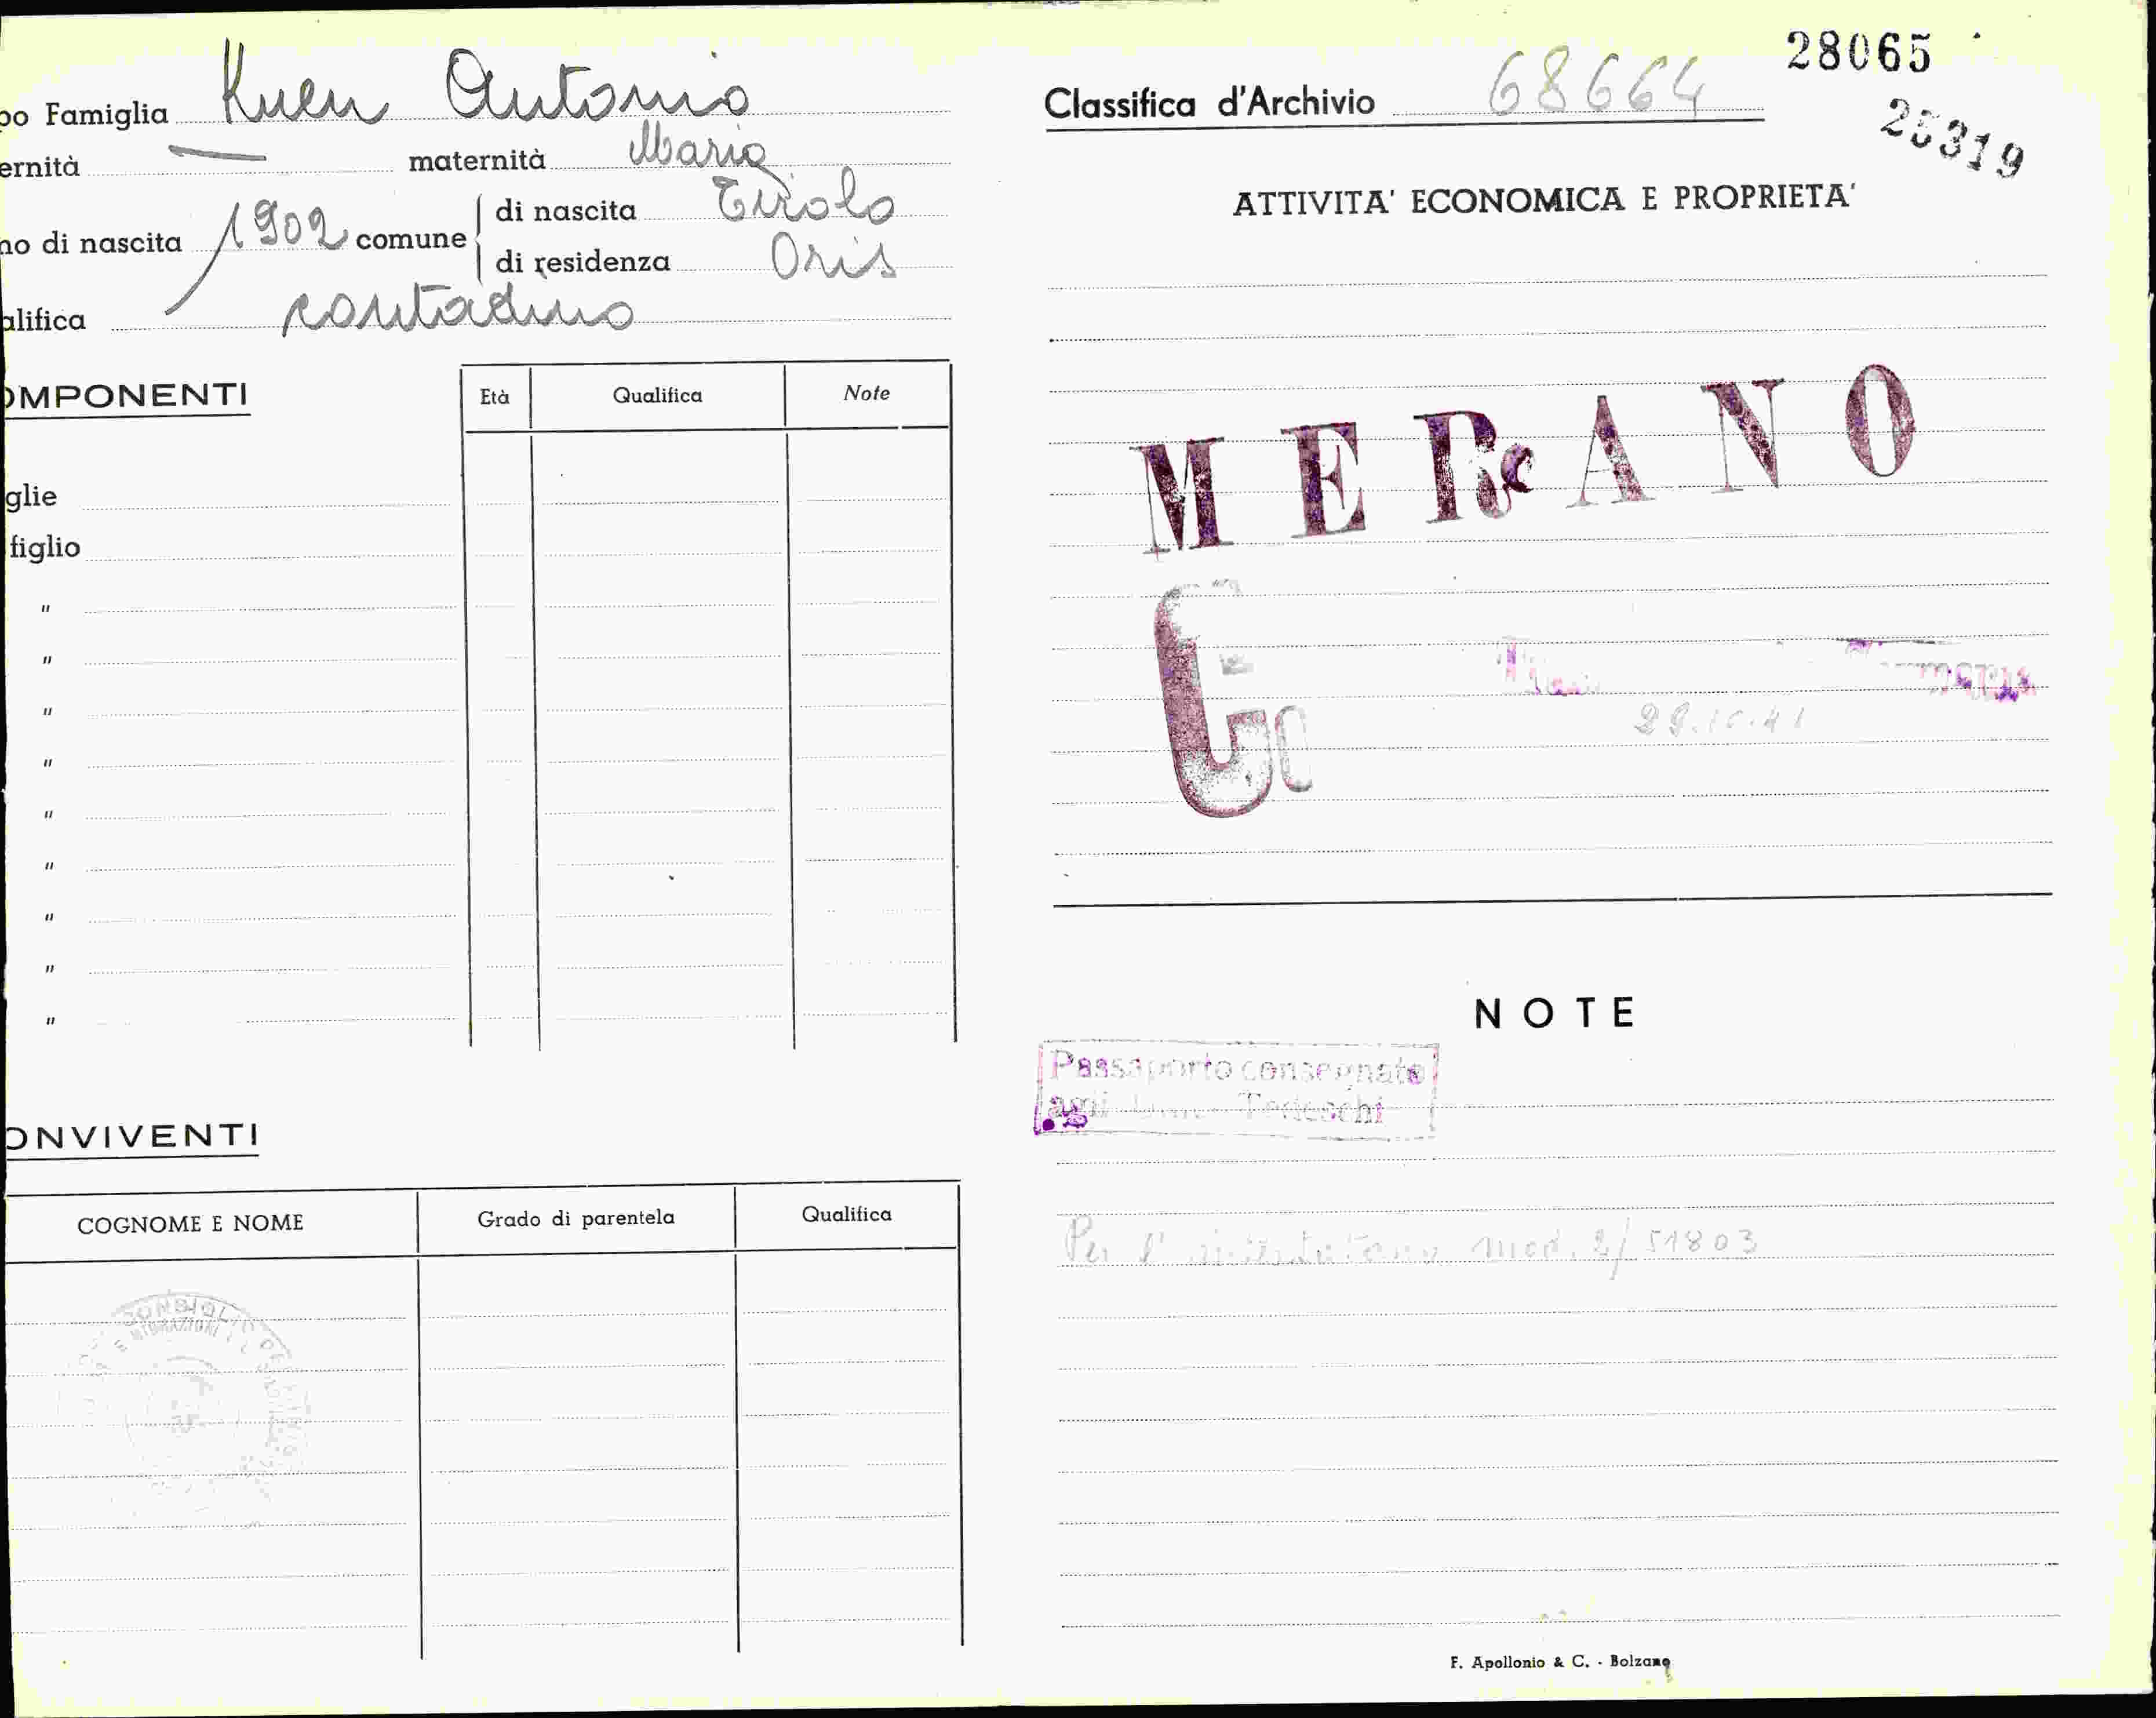 po Famiglia Kuen Antonio
ernità — maternità Maria
no di nascita 1902 comune di nascita Tirolo
di residenza Oris
alifica contadino
OMPONENTI Età Qualifica Note
glie
figlio
"
"
"
"
"
"
"
"
"
ONVIVENTI
COGNOME E NOME Grado di parentela Qualifica
28065
Classifica d'Archivio 68664
25319
ATTIVITA' ECONOMICA E PROPRIETA'
MERANO
29.10.41
NOTE
Passaporto consegnato
agli Tedeschi
Per l' mod. 2/ 51803
F. Apollonio & C. - Bolzano